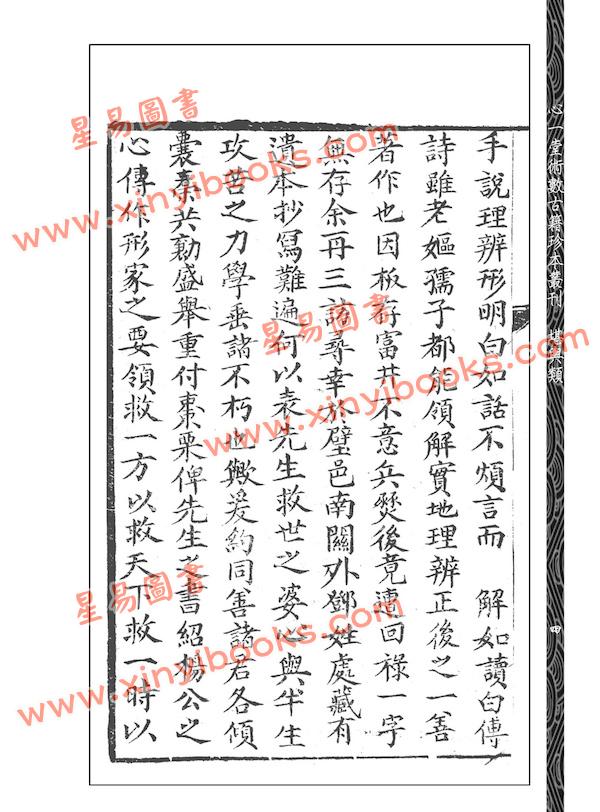 手說理辨形明白如話不煩言而　解如讀白傅
詩雖老嫗孺子都能領解實地理辨正後之一善
著作也因板存富井不意兵燹後竟遭回祿一字
無存余再三訪尋幸於璧邑南關外鄧姓處藏有
遺本抄寫難遍何以表先生救世之婆心與半生
攻苦之力學垂諸不朽也歟爰約同善諸君各傾
囊橐共勷盛舉重付棗栗俾先生之書紹楊公之
心傳作形家之要領救一方以救天下救一時以
心一堂術數古籍珍本叢刊　堪輿類
四
星易圖書
www.xinyibooks.com
星易圖書
www.xinyibooks.com
星易圖書
www.xinyibooks.com